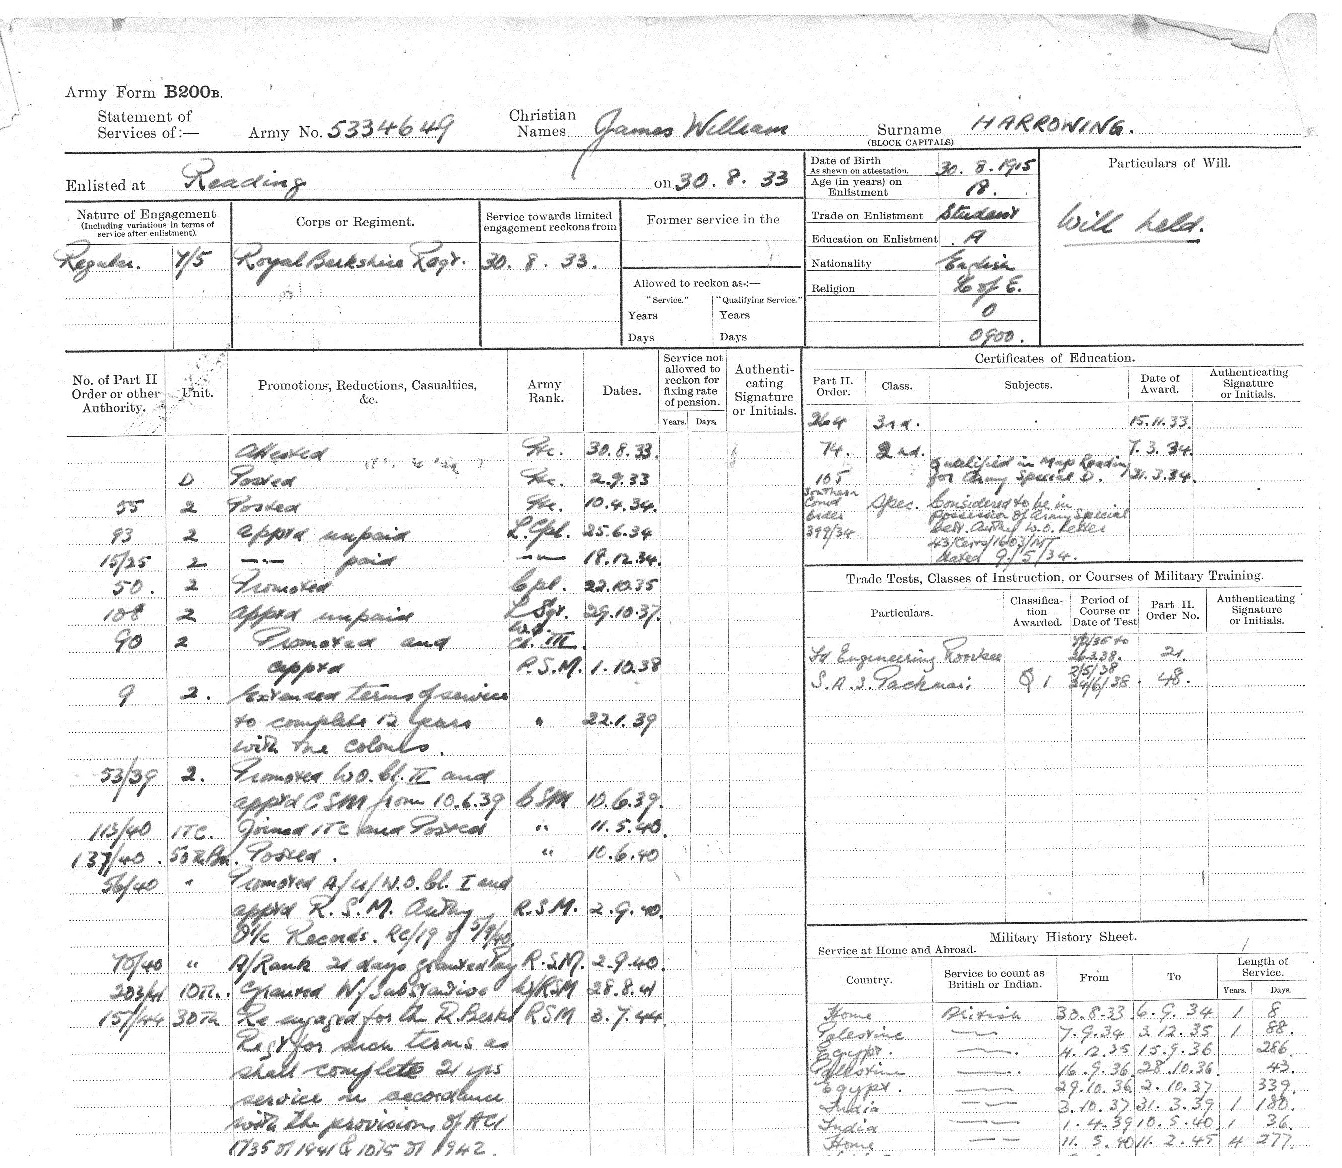 Army Form B200B.
Statement of Services of:— Army No. 5334649 Christian Names James William Surname HARROWING.
(BLOCK CAPITALS)
Enlisted at Reading on 30. 8. 33
Date of Birth As shewn on attestation. 30. 8. 1915
Age (in years) on Enlistment 18.
Trade on Enlistment Student
Education on Enlistment A
Nationality English
Religion C of E.
0
0900.
Particulars of Will.
Will held.
Nature of Engagement (Including variations in terms of service after enlistment).
Corps or Regiment.
Service towards limited engagement reckons from
Former service in the
Regular. 7/5 Royal Berkshire Regt. 30. 8. 33.
Allowed to reckon as:—
"Service." "Qualifying Service."
Years Years
Days Days
No. of Part II Order or other Authority. Unit. Promotions, Reductions, Casualties, &c. Army Rank. Dates. Service not allowed to reckon for fixing rate of pension. Years. Days. Authenticating Signature or Initials.
Attested Pte. 30.8.33.
D Posted Pte. 2.9.33
55 2 Posted Pte. 10.4.34.
93 2 apptd unpaid L.Cpl. 25.6.34
15/25 2 —"— paid —"— 18.12.34.
50. 2 Promoted Cpl. 22.10.35
108 2 apptd unpaid L Sgt. 29.10.37.
90 2 Promoted and Cl. III
apptd P.S.M. 1.10.38
9 2. Extended terms of service
to complete 12 years " 22.1.39
with the colours.
53/39 2. Promoted W.O. Cl. II and
apptd CSM from 10.6.39 CSM 10.6.39.
113/40 ITC. Joined ITC and Posted " 11.5.40.
137/40. 50th Bn. Posted. " 10.6.40
56/40 " Promoted A/U/W.O. Cl. I and
apptd R.S.M. Authy R.S.M. 2.9.40.
O/c Records. RC/19 of 5/9/40
70/40 " A/Rank 21 days granted Pay R.S.M. 2.9.40.
203/41 10th. Granted W/Substantive W/RSM 28.8.41
157/44 30th Re engaged for the R. Berks RSM 3.7.44
Regt for such terms as
shall complete 21 yrs
service in accordance
with the provisions of ACI
1735 of 1941 & 1075 of 1942.
Certificates of Education.
Part II. Order. Class. Subjects. Date of Award. Authenticating Signature or Initials.
264 3rd. 15.11.33.
74. 2nd. 7.3.34.
105 Qualified in Map Reading for Army Special D. 21.3.34.
Southern Comd Order 399/34 Spec. Considered to be in
possession of Army Special
Cert. Authy W.O. Letter
43/Certs/1603/MT
dated 9/5/34.
Trade Tests, Classes of Instruction, or Courses of Military Training.
Particulars. Classification Awarded. Period of Course or Date of Test Part II. Order No. Authenticating Signature or Initials.
Fd Engineering Roorkee 26.3.38. 21
S.A.S. Pachmari Q 1 2/5/38 24/6/38 48.
Military History Sheet.
Service at Home and Abroad.
Country. Service to count as British or Indian. From To Length of Service. Years. Days.
Home British 30.8.33 6.9.34 1 8
Palestine —"— 7.9.34 3.12.35 1 88.
Egypt. —"—. 4.12.35 15.9.36 286.
Palestine —"—. 16.9.36 28.10.36. 43.
Egypt. —"— 29.10.36 2.10.37 339.
India —"— 3.10.37 31.3.39 1 180.
India —"— 1.4.39 10.5.40 1 36.
Home —"— 11.5.40 11.2.45 4 277.